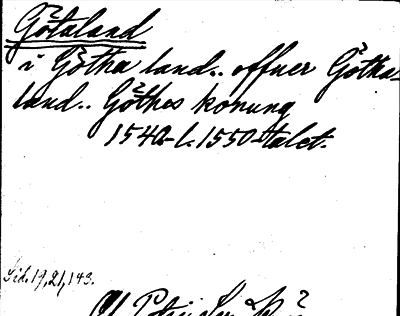 Götaland
i Götha land.. offuer Götha-
land.. Göthes konung
1540- l. 1550-talet.
Sid. 19, 21, 143.